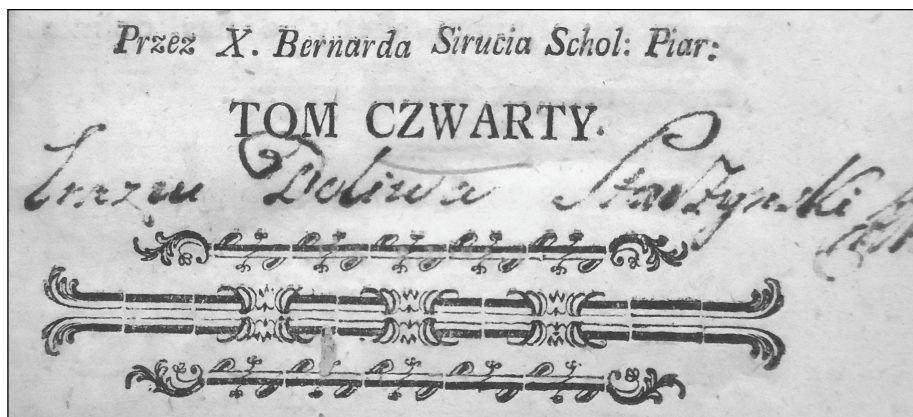 Przez X. Bernarda Sirucia Schol: Piar:
TOM CZWARTY.
Doliwa Starzynski